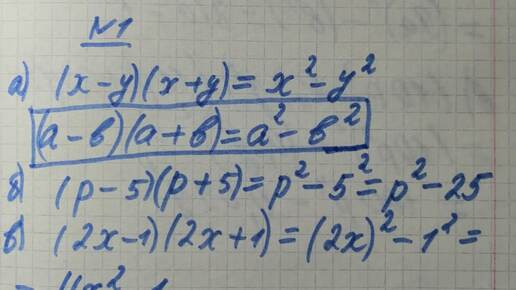 №1
а) (x-y)(x+y)=x²-y²
(a-b)(a+b)=a²-b²
б) (p-5)(p+5)=p²-5²=p²-25
в) (2x-1)(2x+1)=(2x)²-1²=
= 4x²-1